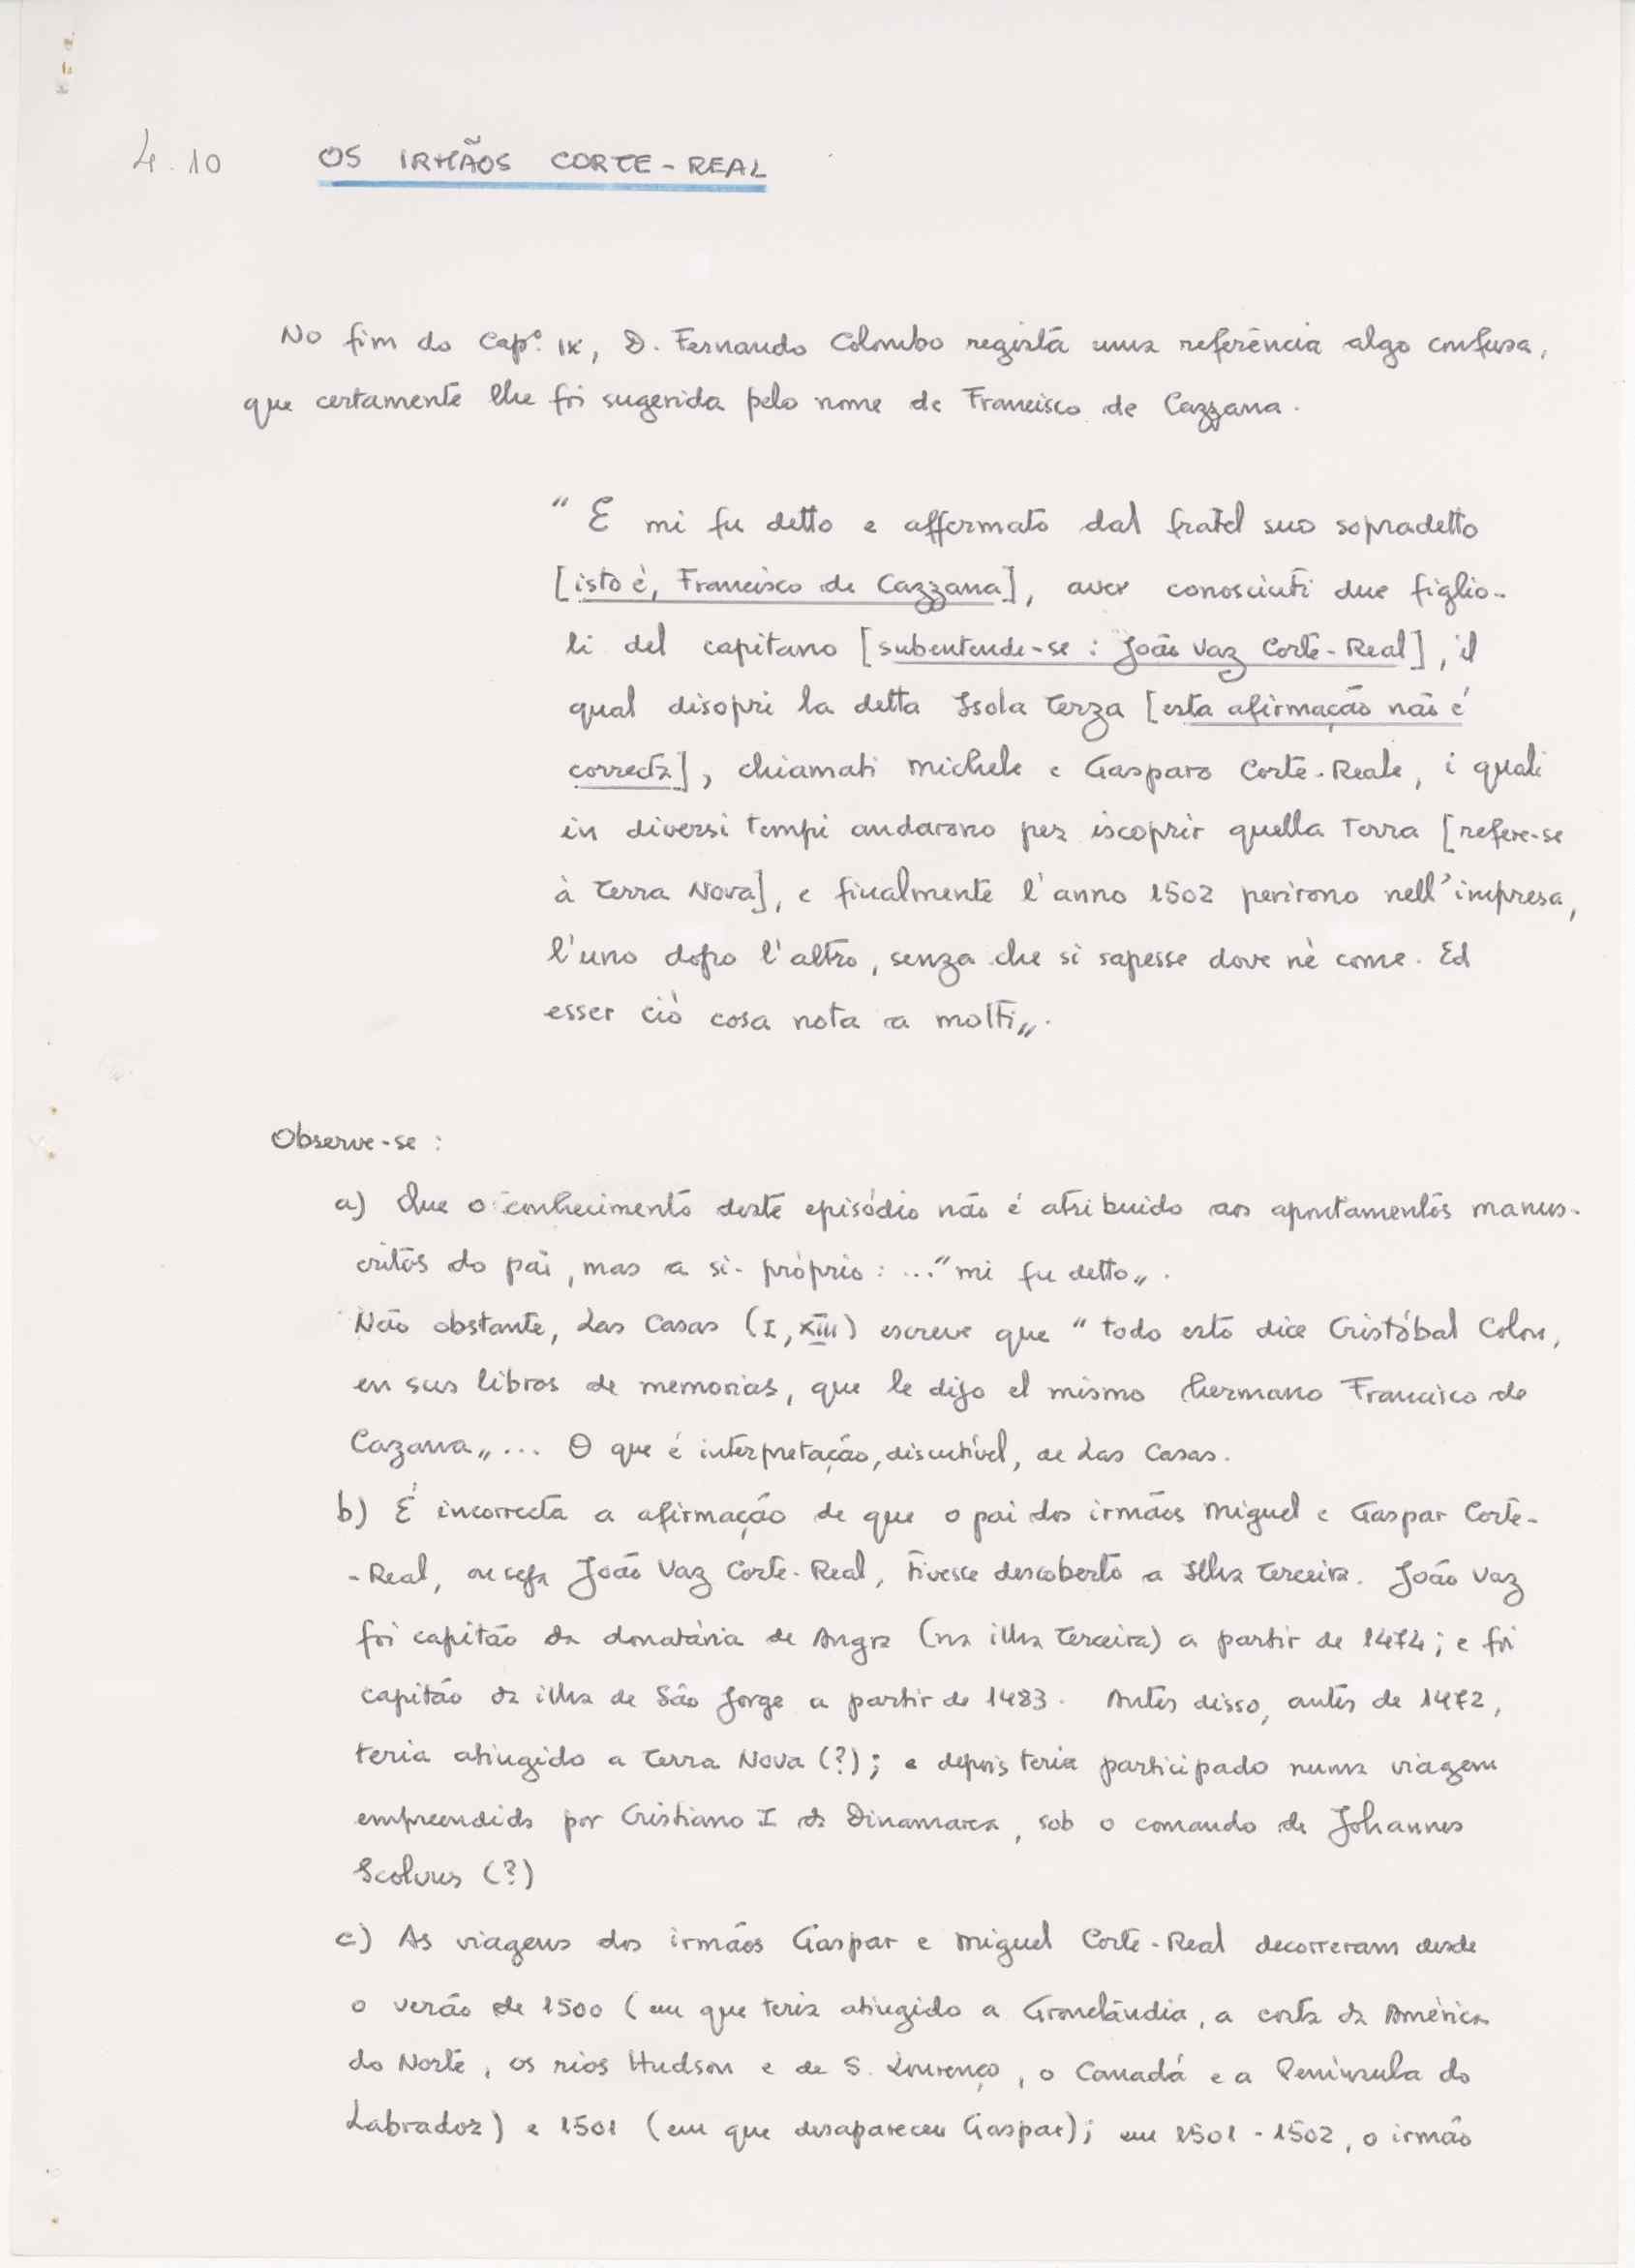 4.10 OS IRMÃOS CORTE-REAL
No fim do Capº. IX, D. Fernando Colombo registá uma referência algo confusa,
que certamente lhe foi sugerida pelo nome de Francisco de Cazzana.
" E mi fu detto e affermato dal fratel suo sopradetto
[isto é, Francisco de Cazzana], aver conosciuti due figlio-
li del capitano [subentende-se : João Vaz Corte-Real], il
qual discoprì la detta Isola Terza [esta afirmação não é
correcta], chiamati Michele e Gasparo Corte-Reale, i quali
in diversi tempi andarono per iscoprir quella terra [refere-se
à Terra Nova], e finalmente l'anno 1502 perirono nell'impresa,
l'uno dopo l'altro, senza che si sapesse dove nè come. Ed
esser ciò cosa nota a molti„.
Observe-se :
a) Que o conhecimento deste episódio não é atribuido aos apontamentos manus-
critos do pai, mas a si-próprio : ..."mi fu detto„.
Não obstante, Las Casas (I, XIII) escreve que "todo esto dice Cristóbal Colon,
en sus libros de memorias, que le dijo el mismo hermano Francisco de
Cazana„... O que é interpretação, discutível, de Las Casas.
b) É incorrecta a afirmação de que o pai dos irmãos Miguel e Gaspar Corte-
-Real, ou seja João Vaz Corte-Real, tivesse descoberto a Ilha Terceira. João Vaz
foi capitão da donatária de Angra (na ilha Terceira) a partir de 1474; e foi
capitão da ilha de São Jorge a partir de 1483. Antes disso, antes de 1472,
teria atingido a Terra Nova (?); e depois teria participado numa viagem
empreendida por Cristiano I da Dinamarca, sob o comando de Johannes
Scolvus (?)
c) As viagens dos irmãos Gaspar e Miguel Corte-Real decorreram desde
o verão de 1500 (em que teria atingido a Gronelândia, a costa da América
do Norte, os rios Hudson e de S. Lourenço, o Canadá e a Península do
Labrador) e 1501 (em que desapareceu Gaspar); em 1501-1502, o irmão